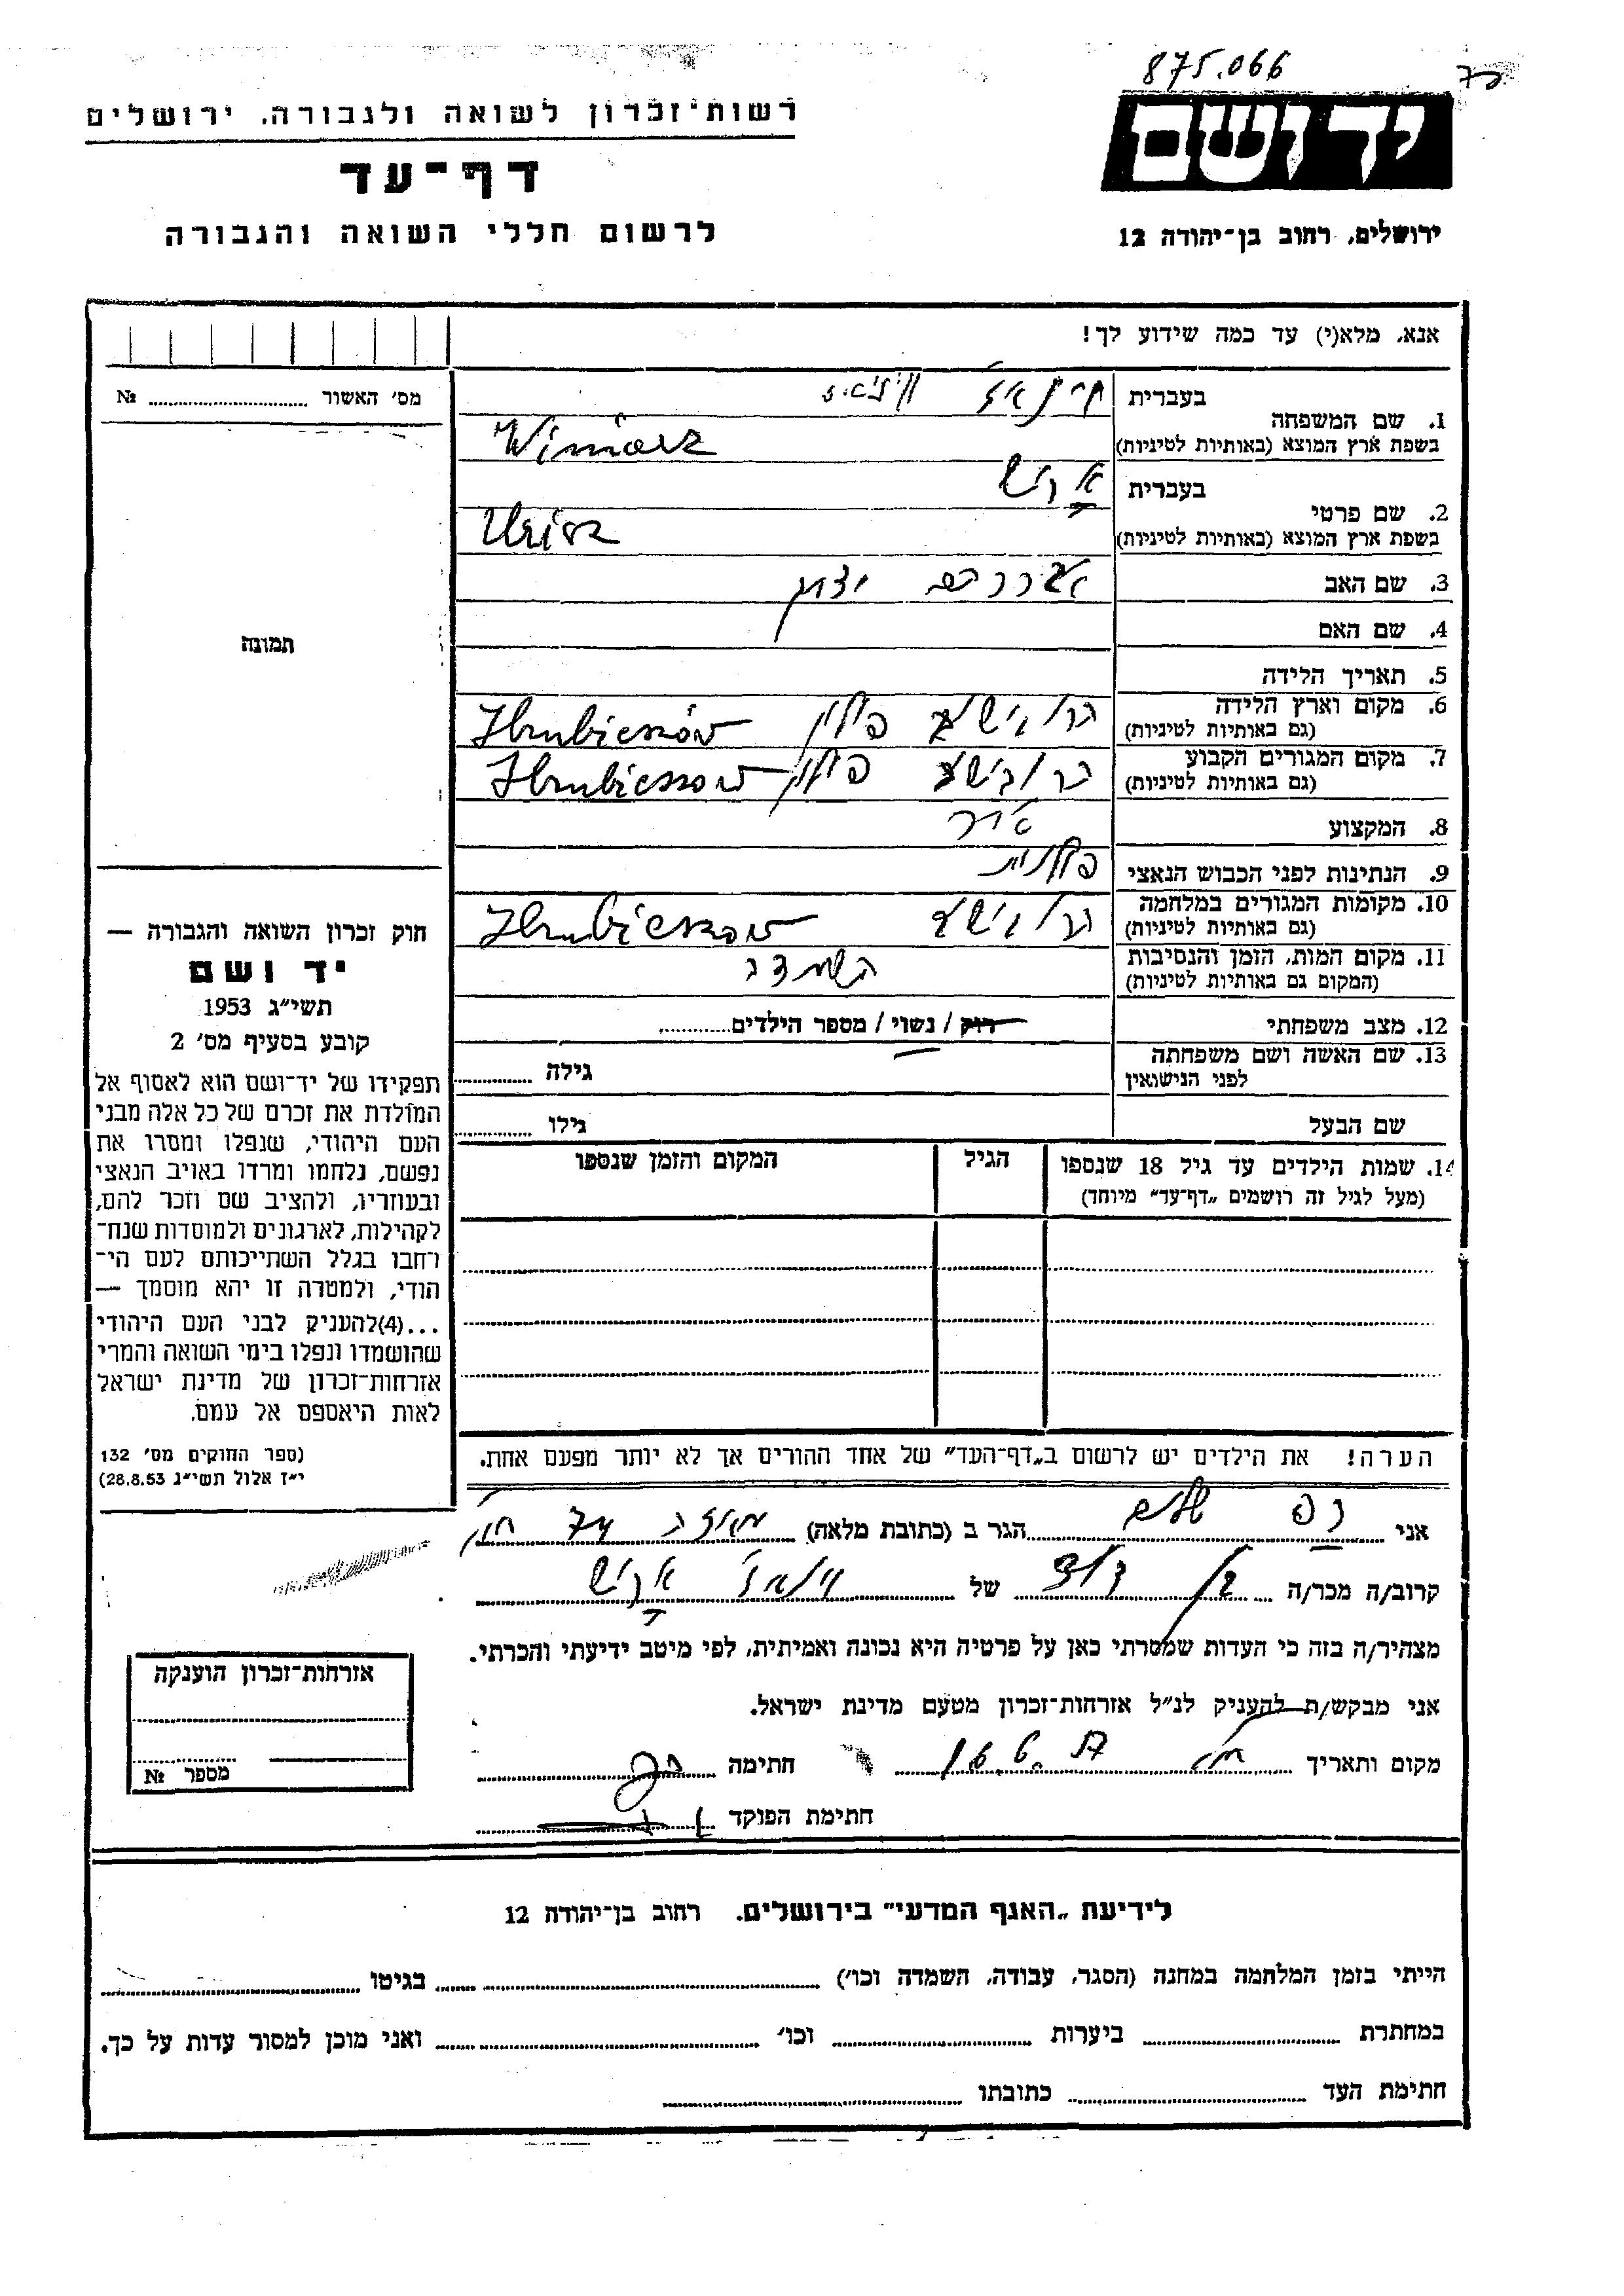 875.066
רשות־זכרון לשואה ולגבורה, ירושלים
דף־עד
לרשום חללי השואה והגבורה
יד ושם
ירושלים, רחוב בן־יהודה 12
אנא, מלא(י) עד כמה שידוע לך!
מס׳ האשור № ........
1. שם המשפחה
בעברית
בשפת ארץ המוצא (באותיות לטיניות) Winiarz
2. שם פרטי
בעברית
בשפת ארץ המוצא (באותיות לטיניות)
3. שם האב אברהם יצחק
4. שם האם
5. תאריך הלידה
6. מקום וארץ הלידה
(גם באותיות לטיניות) פולין Hrubieszów
7. מקום המגורים הקבוע
(גם באותיות לטיניות) פולין Hrubieszow
8. המקצוע
9. הנתינות לפני הכבוש הנאצי פולנית
10. מקומות המגורים במלחמה
(גם באותיות לטיניות) Hrubieszow
11. מקום המות, הזמן והנסיבות
(המקום גם באותיות לטיניות) השמדה
12. מצב משפחתי רוק / נשוי / מספר הילדים........
13. שם האשה ושם משפחתה
לפני הנישואין גילה ........
שם הבעל גילו ........
14. שמות הילדים עד גיל 18 שנספו
(מעל לגיל זה רושמים „דף־עד״ מיוחד)
הגיל
המקום והזמן שנספו
הערה! את הילדים יש לרשום ב„דף־העד״ של אחד ההורים אך לא יותר מפעם אחת.
תמונה
חוק זכרון השואה והגבורה —
יד ושם
תשי״ג 1953
קובע בסעיף מס׳ 2
תפקידו של יד־ושם הוא לאסוף אל
המולדת את זכרם של כל אלה מבני
העם היהודי, שנפלו ומסרו את
נפשם, נלחמו ומרדו באויב הנאצי
ובעוזריו, ולהציב שם וזכר להם,
לקהילות, לארגונים ולמוסדות שנח־
רחבו בגלל השתייכותם לעם הי־
הודי, ולמטרה זו יהא מוסמך —
...(4)להעניק לבני העם היהודי
שהושמדו ונפלו בימי השואה והמרי
אזרחות־זכרון של מדינת ישראל
לאות היאספם אל עמם.
(ספר החוקים מס׳ 132
י״ז אלול תשי״ג 28.8.53)
אני ........ הגר ב (כתובת מלאה) ........
קרוב/ה מכר/ה בן דוד של ........
מצהיר/ה בזה כי העדות שמסרתי כאן על פרטיה היא נכונה ואמיתית, לפי מיטב ידיעתי והכרתי.
אני מבקש/ת להעניק לנ״ל אזרחות־זכרון מטעם מדינת ישראל.
מקום ותאריך ........ חתימה ........
חתימת הפוקד ........
אזרחות־זכרון הוענקה
מספר №
לידיעת „האגף המדעי״ בירושלים, רחוב בן־יהודה 12
הייתי בזמן המלחמה במחנה (הסגר, עבודה, השמדה וכו׳) ........ בגיטו ........
במחתרת ........ ביערות ........ וכו׳ ........ ואני מוכן למסור עדות על כך.
חתימת העד ........ כתובתו ........